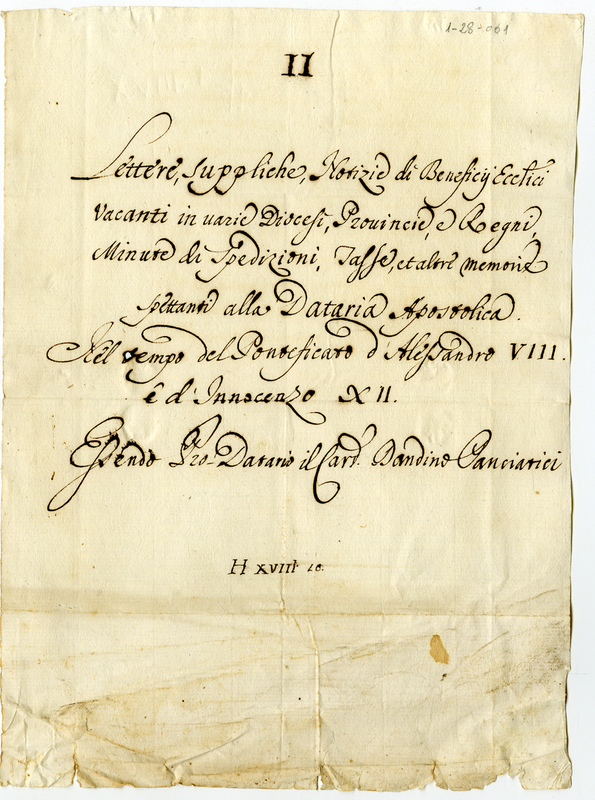 1-28-001
II
Lettere, Suppliche, Notizie di Beneficij Ecclici
Vacanti in varie Diocesi, Provincie, e Regni,
Minute di Spedizioni, Tasse, et altre memorie
spettanti alla Dataria Apostolica.
Nel tempo del Ponteficato d'Alessandro VIII.
e d'Innocenzo XII.
Essendo Pro-Datario il Card. Bandino Panciatici
H XVIII 10.